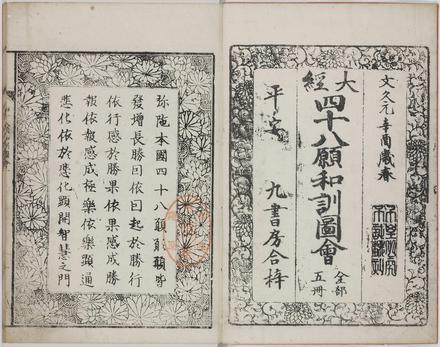 文久元辛酉歳春
大經
四十八願和訓圖會
全部五冊
平安 九書房合梓
弥陀本國四十八願願願皆
發増長勝因依因起於勝行
依行感於勝果依果感成勝
報依報感成極樂依樂顕通
悲化依於悲化顕開智慧之門